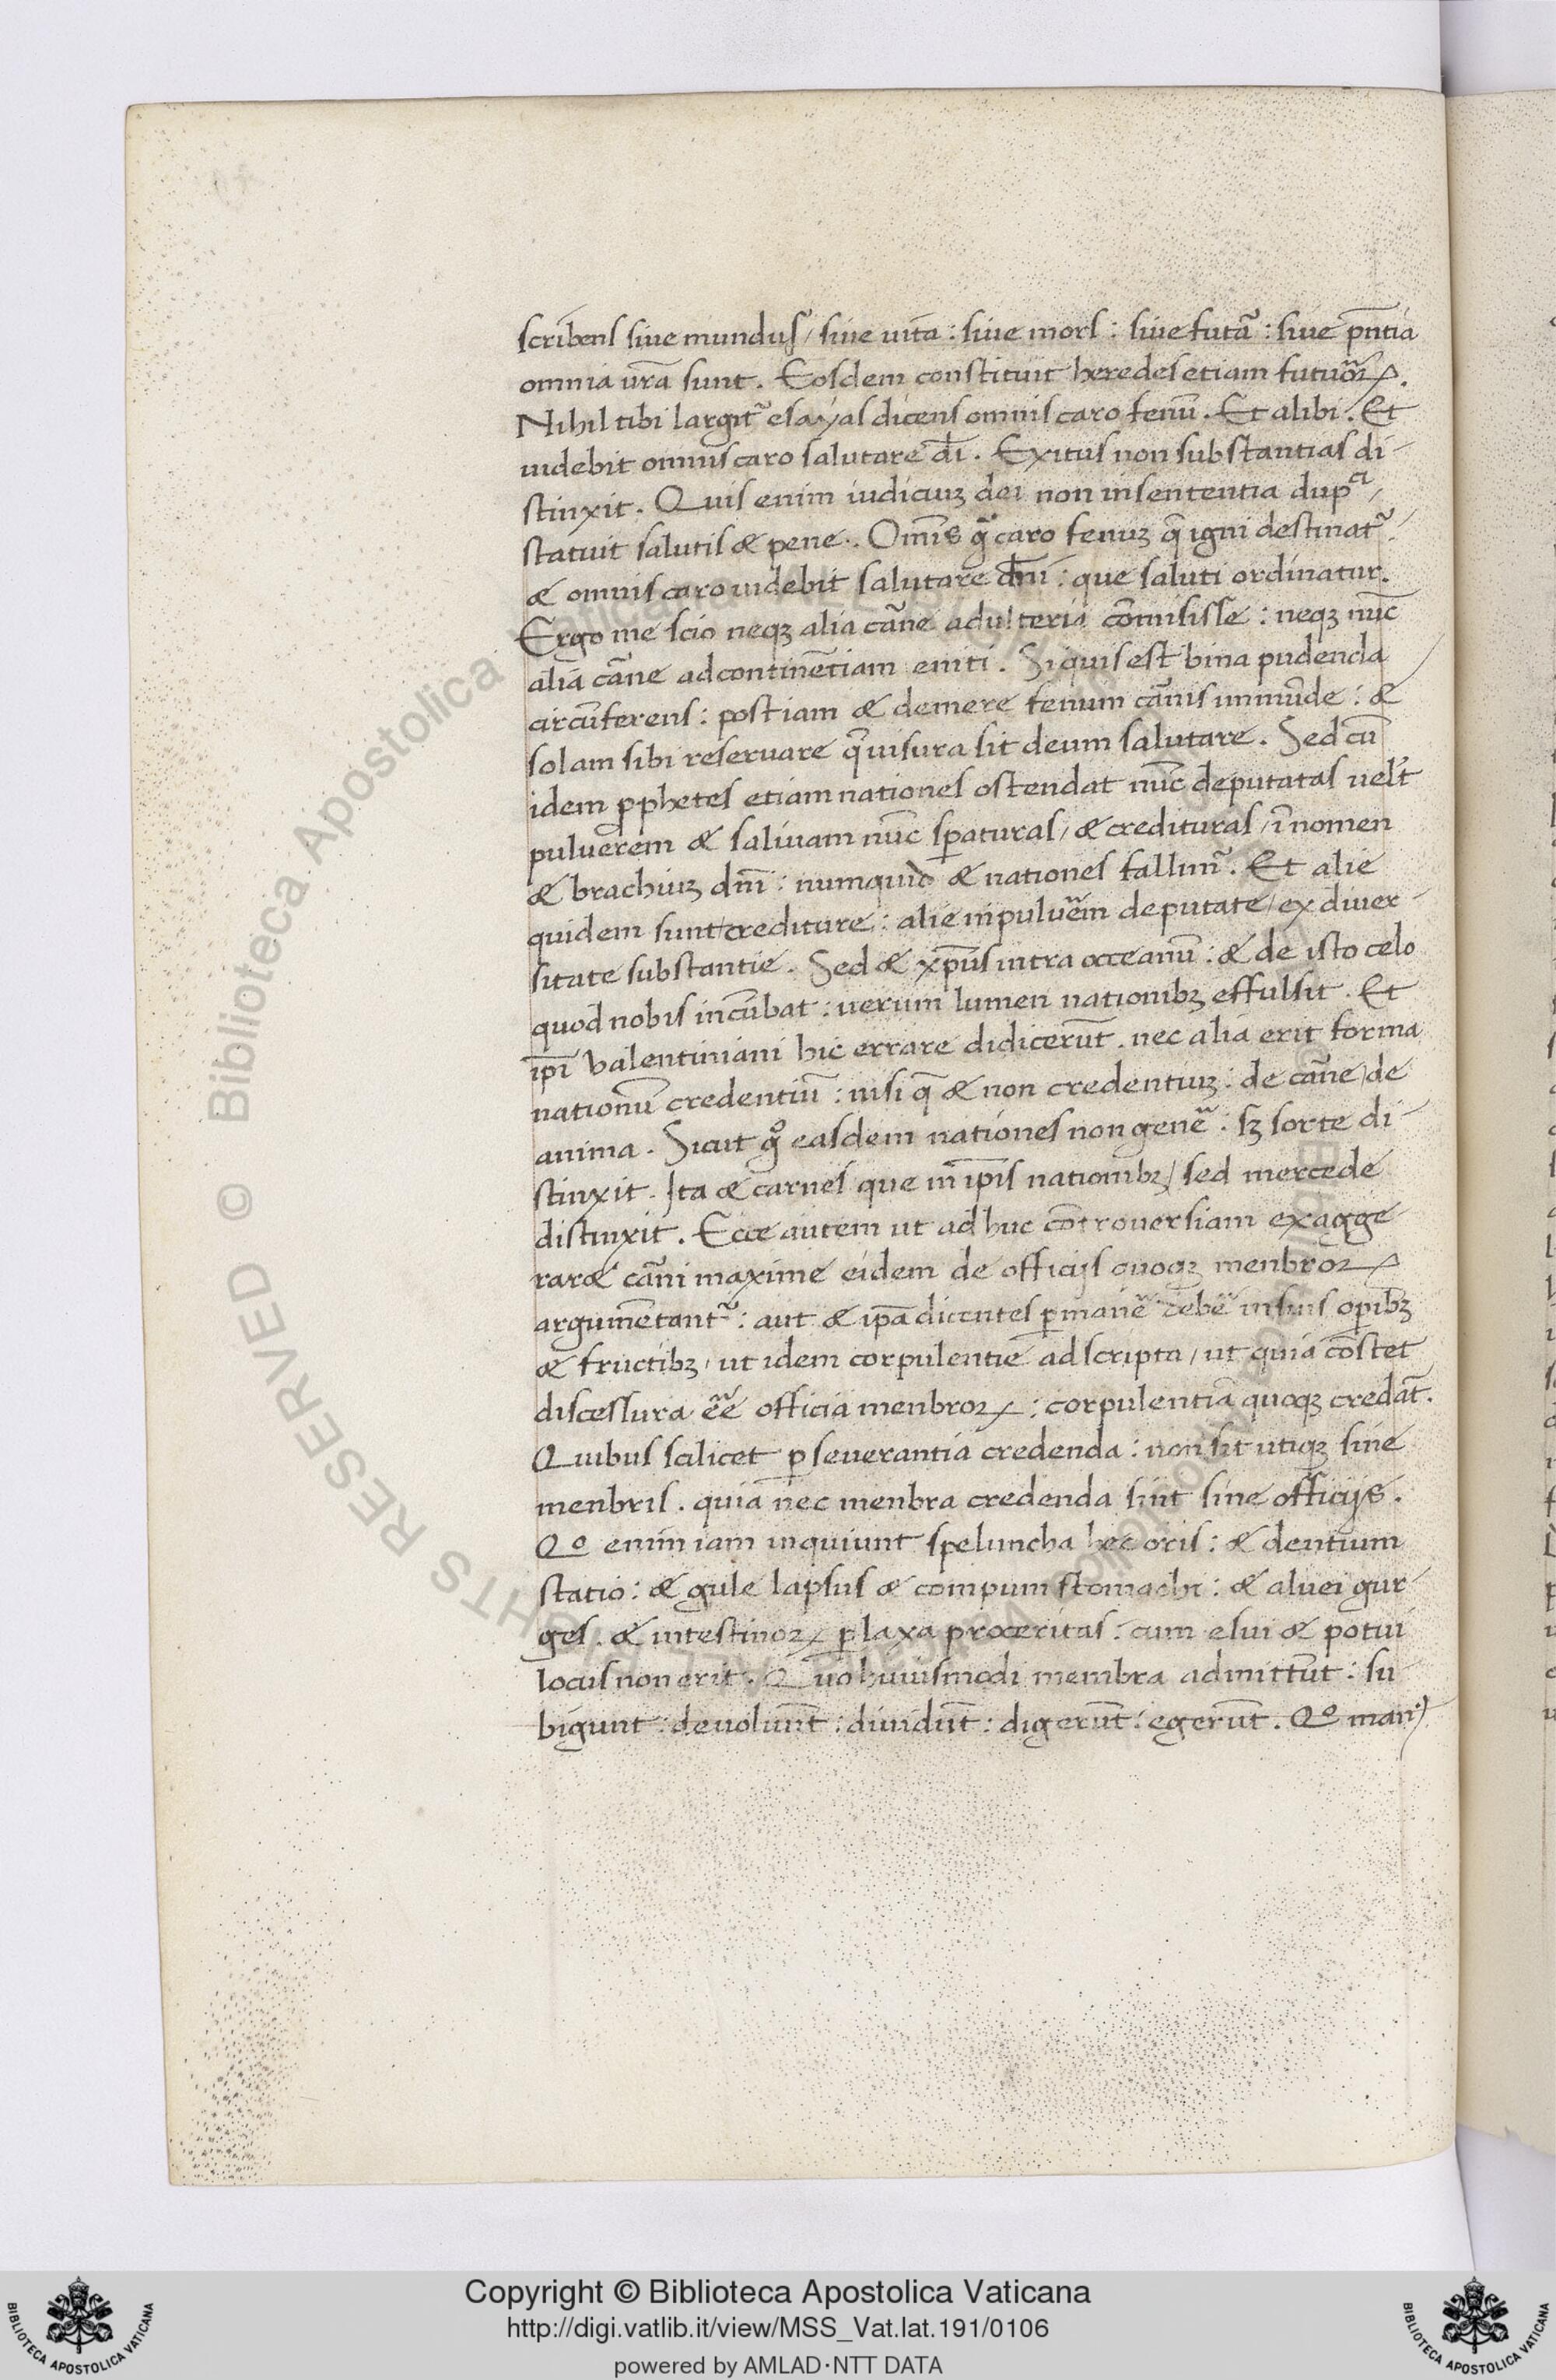 scribens siue mundus, siue uita: siue mors: siue futa᷑: siue pn̄tia
omnia ur̄a sunt. Eosdem constituit heredes etiam futuōꝝ.
Nihil tibi largit᷑ esayas dicens omnis caro fenū. Et alibi. Et
uidebit omnis caro salutare dī. Exitus non substantias di-
stinxit. Quis enim iudiciuꝫ dei non in sententia dup
statuit salutis & pene. Om̄is gͦ caro fenuꝫ q̄ igni destinat᷑.
& omnis caro uidebit salutare dn̄i: que saluti ordinatur.
Ergo me scio neqꝫ alia cāne adulteria cōmisisse: neqꝫ nūc
alia cāne ad continētiam eniti. Siquis est bina pudenda
circūferens: post iam & demere fenum cānis immūde: &
solam sibi reseruare q̄ uisura sit deum salutare. Sed cū
idem ꝓphetes etiam nationes ostendat nūc deputatas uel᷑t
puluerem & saliuam nūc sꝑaturas, & credituras, ī nomen
& brachiuꝫ dn̄i: numquid & nationes fallim᷑. Et alie
quidem sunt crediture: alie in puluēm deputate, ex diuer-
sitate substantie. Sed & xp̄us intra occeanū: & de isto celo
quod nobis incūbat: uerum lumen nationibꝫ effulsit. Et
ip̄i Valentiniani hic errare didicerūt. nec alia erit forma
nationū credentiū: nisi q̄ & non credentiuꝫ: de cāne, de
anima. Sicut gͦ easdem nationes non genē: sꝫ sorte di-
stinxit. Ita & carnes que in ip̄is nationibꝫ, sed mercede
distinxit. Ecce autem ut adhuc cōtrouersiam exagge-
rare cāni maxime eidem de officijs quoqꝫ menbroꝝ
argumētant᷑: aut & ip̄a dicentes ꝑmanē debē in suis oꝑibꝫ
& fructibꝫ, ut idem corpulentie adscripta, ut quia cōstet
discessura eē officia menbroꝝ: corpulentiā quoqꝫ credāt.
Quibus scilicet ꝑseuerantia credenda: non sit utiqꝫ sine
menbris. quia nec menbra credenda sint sine officijs.
Qͦ enim iam inquiunt speluncha hec oris: & dentium
statio: & gule lapsus & compum stomachi: & aluei gur-
ges. & intestinoꝝ ꝑlaxa proceritas: cum esui & potui
locus non erit. Quo huiusmodi membra admittūt: su-
bigunt: deuoluūt: diuidūt: digerūt: egerūt. Qͦ man᷒
Copyright © Biblioteca Apostolica Vaticana
http://digi.vatlib.it/view/MSS_Vat.lat.191/0106
powered by AMLAD·NTT DATA